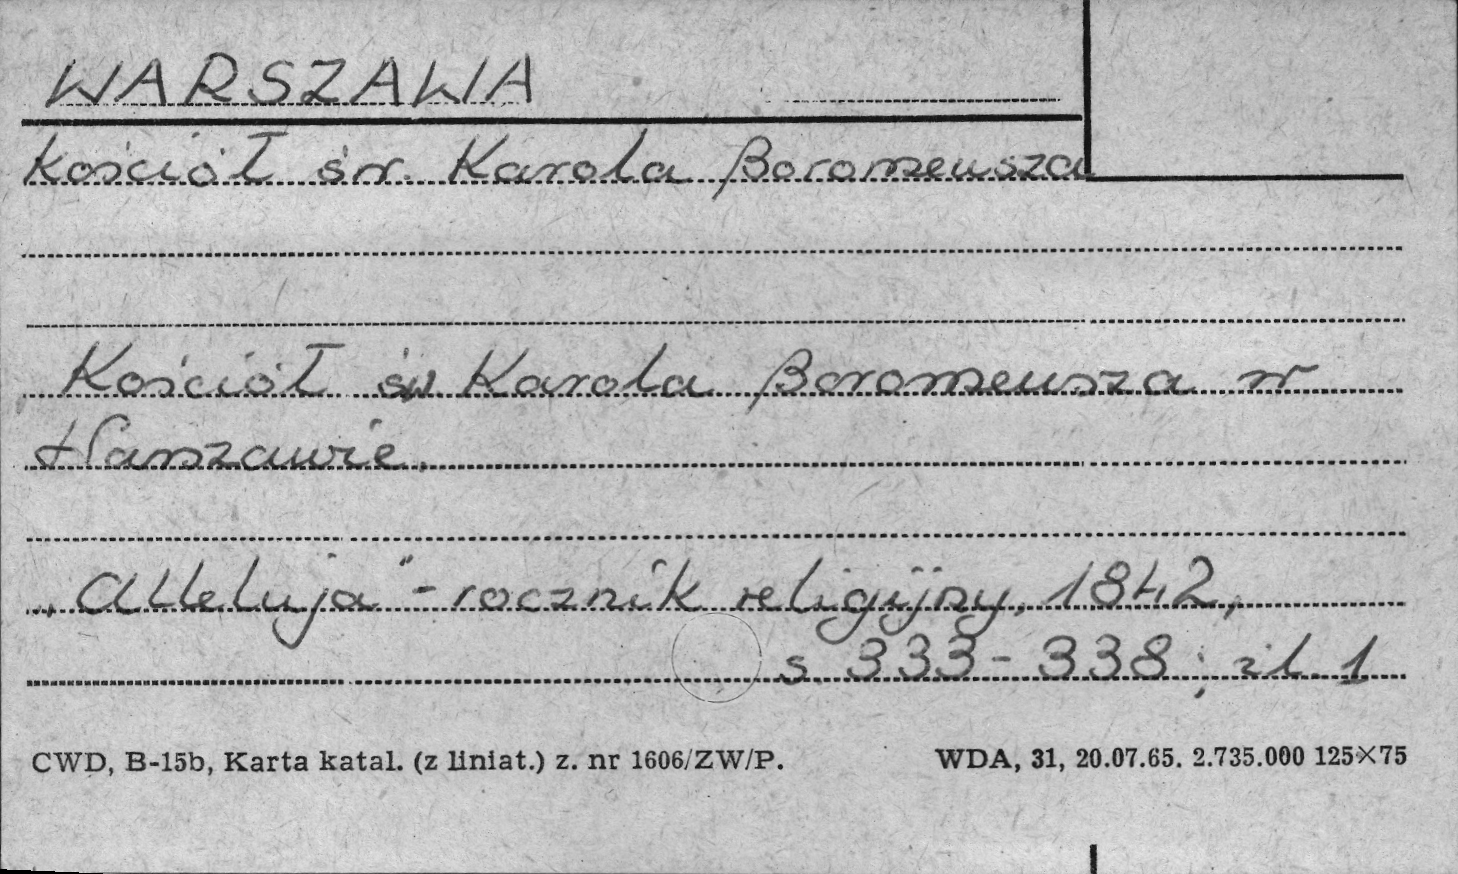 WARSZAWA
Kościół św. Karola Boromeusza
Kościół św. Karola Boromeusza w
Warszawie.
„Alleluja" - rocznik religijny, 1842,
s. 333-338; il. 1
CWD, B-15b, Karta katal. (z liniat.) z. nr 1606/ZW/P. WDA, 31, 20.07.65. 2.735.000 125×75